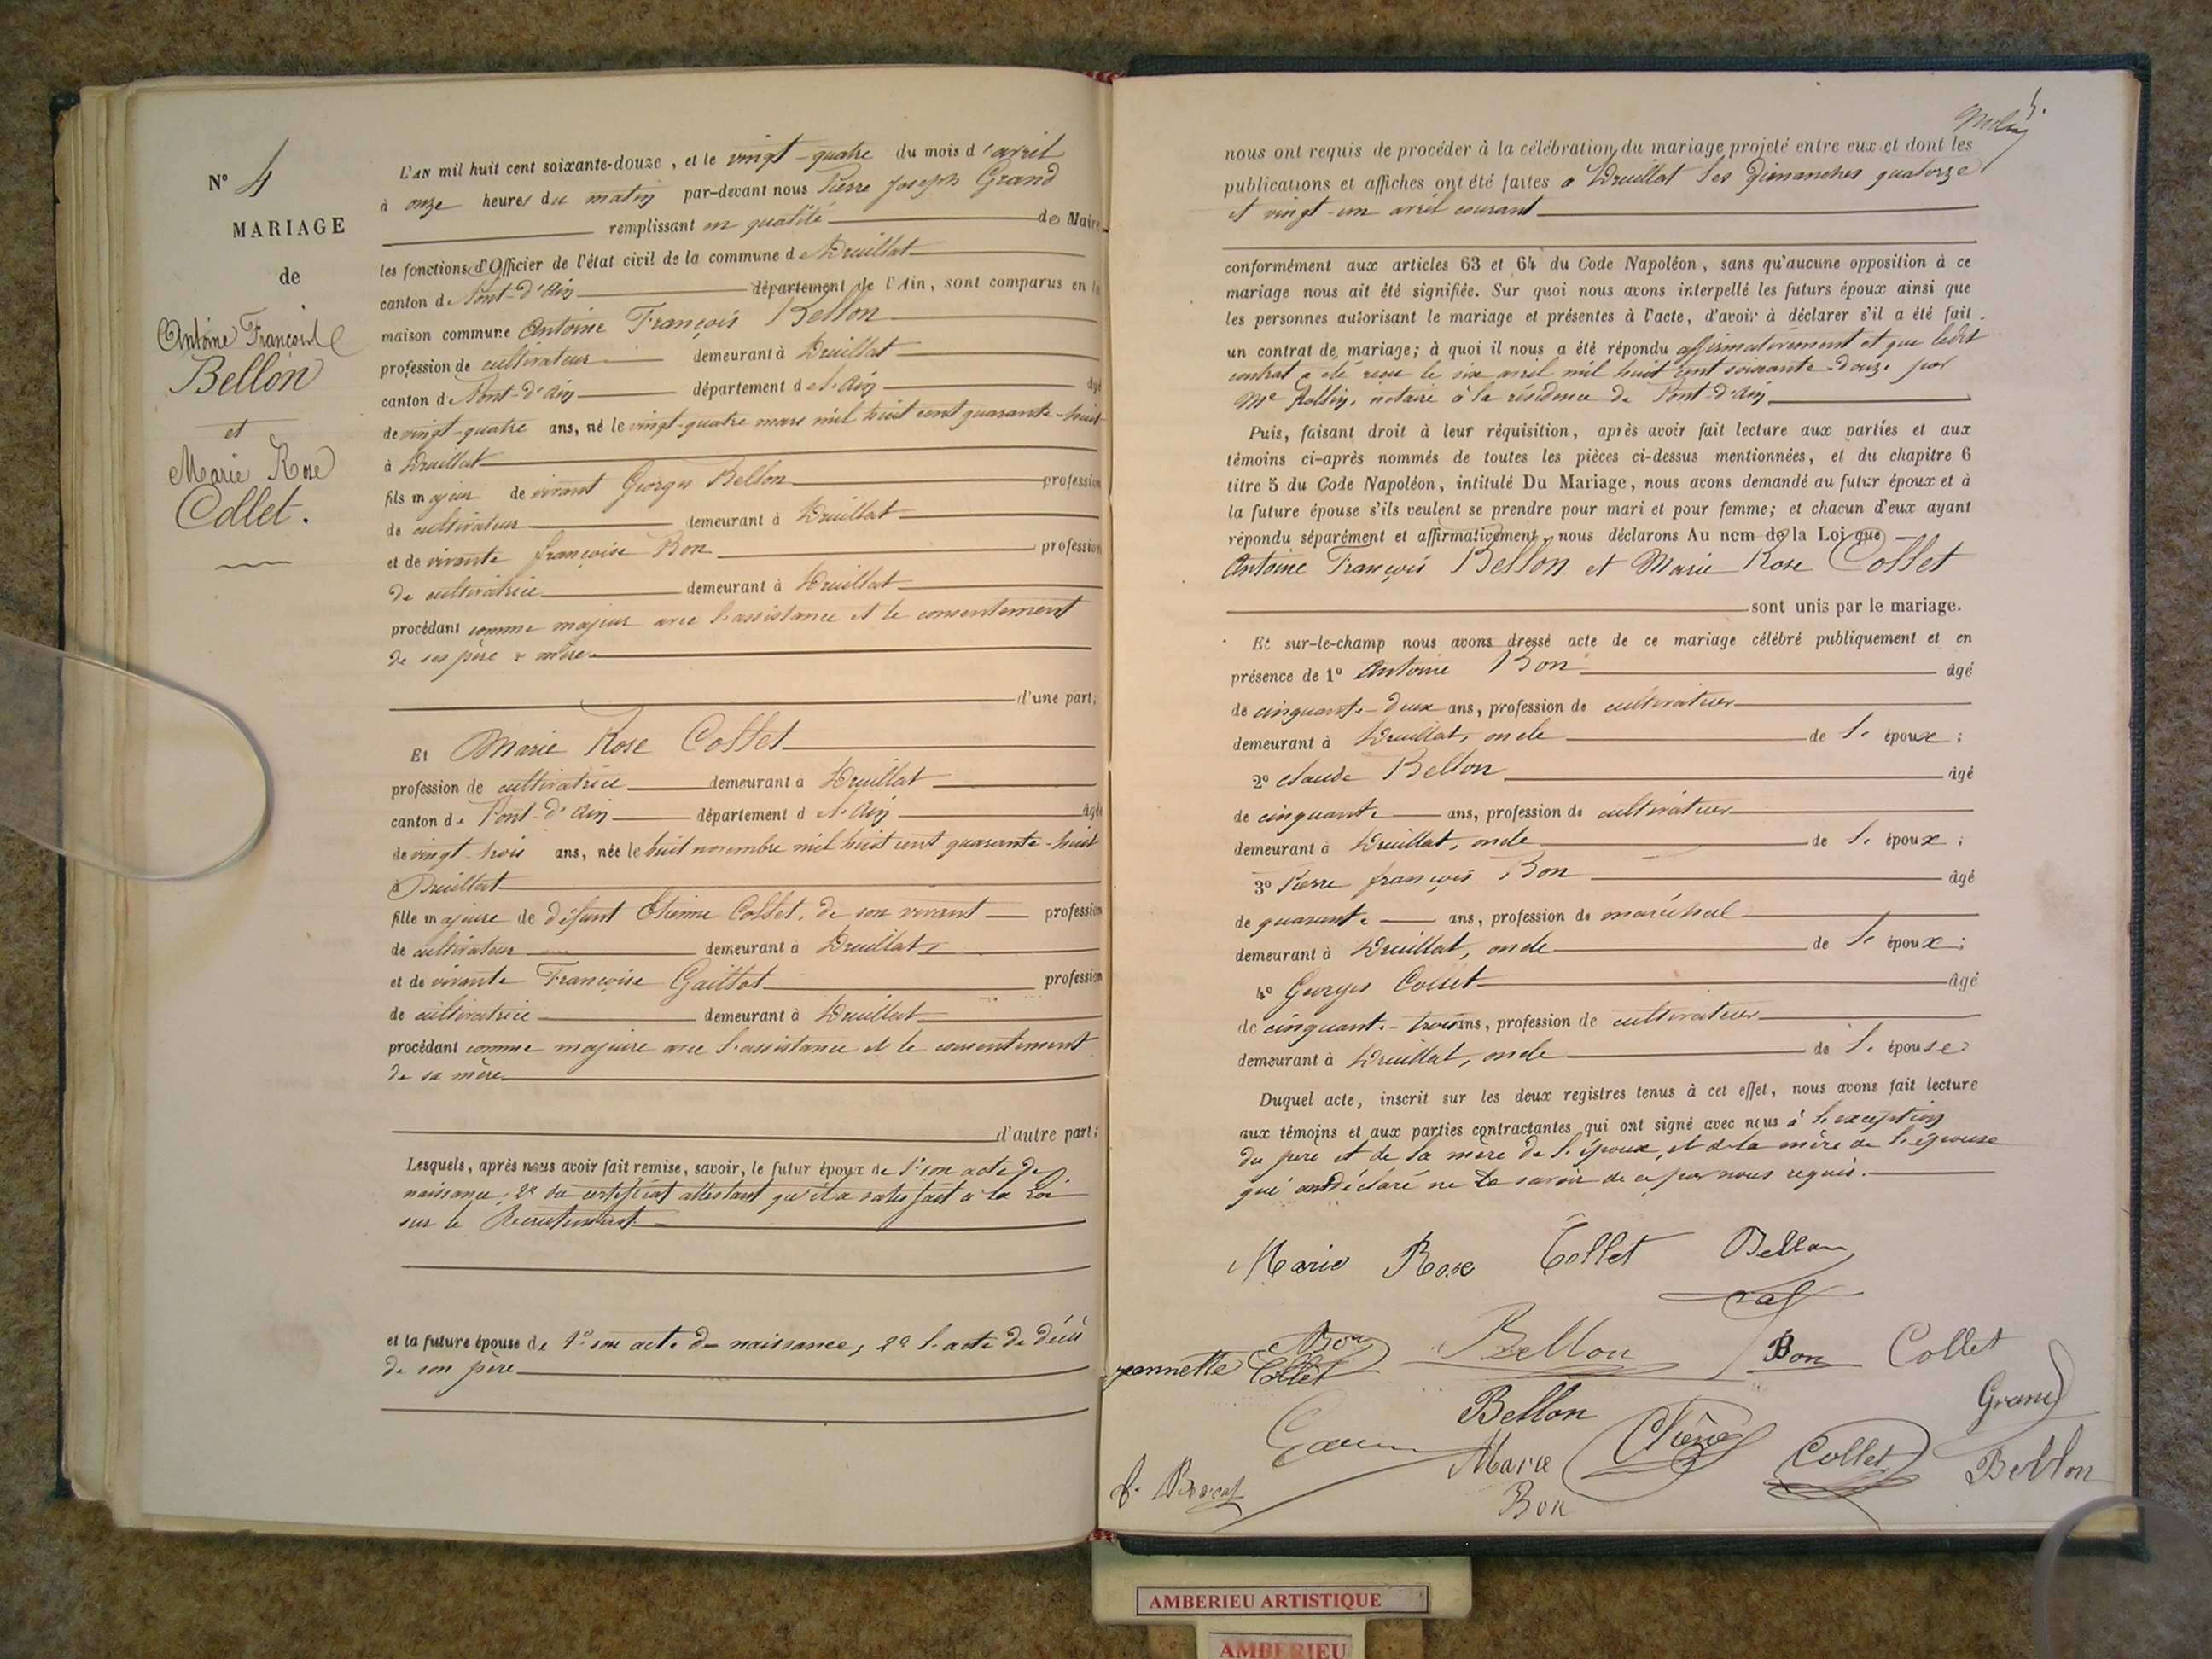 N° 4
MARIAGE
de
Antoine François
Bellon
et
Marie Rose
Collet.
L'AN mil huit cent soixante-douze, et le vingt-quatre du mois d'avril
à onze heures du matin par-devant nous Pierre Joseph Grand
remplissant en qualité de Maire
les fonctions d'Officier de l'état civil de la commune de Druillat
canton de Pont-d'Ain département de l'Ain, sont comparus en la
maison commune Antoine François Bellon
profession de cultivateur demeurant à Druillat
canton de Pont-d'Ain département de l'Ain âgé
de vingt-quatre ans, né le vingt-quatre mars mil huit cent quarante-huit
à Druillat
fils majeur de vivant Georges Bellon profession
de cultivateur demeurant à Druillat
et de vivante françoise Bon profession
de cultivatrice demeurant à Druillat
procédant comme majeur avec l'assistance et le consentement
de ses père & mère
d'une part;
Et Marie Rose Collet
profession de cultivatrice demeurant à Druillat
canton de Pont-d'Ain département de l'Ain âgée
de vingt-trois ans, née le huit novembre mil huit cent quarante-huit
à Druillat
fille majeure de défunt Etienne Collet, de son vivant profession
de cultivateur demeurant à Druillat,
et de vivante Françoise Gaillot profession
de cultivatrice demeurant à Druillat
procédant comme majeure avec l'assistance et le consentement
de sa mère
d'autre part;
Lesquels, après nous avoir fait remise, savoir, le futur époux de 1° son acte de
naissance, 2° du certificat attestant qu'il a satisfait à la Loi
sur le Recrutement
et la future épouse de 1° son acte de naissance, 2° l'acte de décès
de son père
5.
nous ont requis de procéder à la célébration du mariage projeté entre eux et dont les
publications et affiches ont été faites à Druillat les Dimanches quatorze
et vingt-un avril courant
conformément aux articles 63 et 64 du Code Napoléon, sans qu'aucune opposition à ce
mariage nous ait été signifiée. Sur quoi nous avons interpellé les futurs époux ainsi que
les personnes autorisant le mariage et présentes à l'acte, d'avoir à déclarer s'il a été fait
un contrat de mariage; à quoi il nous a été répondu affirmativement et que ledit
contrat a été reçu le six avril mil huit cent soixante-douze par
Me Rollin, notaire à la résidence de Pont-d'Ain
Puis, faisant droit à leur réquisition, après avoir fait lecture aux parties et aux
témoins ci-après nommés de toutes les pièces ci-dessus mentionnées, et du chapitre 6
titre 5 du Code Napoléon, intitulé Du Mariage, nous avons demandé au futur époux et à
la future épouse s'ils veulent se prendre pour mari et pour femme; et chacun d'eux ayant
répondu séparément et affirmativement, nous déclarons Au nom de la Loi que
Antoine François Bellon et Marie Rose Collet
sont unis par le mariage.
Et sur-le-champ nous avons dressé acte de ce mariage célébré publiquement et en
présence de 1° Antoine Bon âgé
de cinquante-deux ans, profession de cultivateur
demeurant à Druillat, oncle de l'époux;
2° Claude Bellon âgé
de cinquante ans, profession de cultivateur
demeurant à Druillat, oncle de l'époux;
3° Pierre françois Bon âgé
de quarante ans, profession de maréchal
demeurant à Druillat, oncle de l'époux;
4° Georges Collet âgé
de cinquante-trois ans, profession de cultivateur
demeurant à Druillat, oncle de l'épouse
Duquel acte, inscrit sur les deux registres tenus à cet effet, nous avons fait lecture
aux témoins et aux parties contractantes qui ont signé avec nous à l'exception
du père et de la mère de l'époux, et de la mère de l'épouse
qui ont déclaré ne le savoir de ce par nous requis.
Marie Rose Collet Bellon
Bon Bellon Bon Collet
jeannette Collet
Bellon Grand
Marie Collet Bellon
Bon
AMBERIEU ARTISTIQUE
AMBERIEU